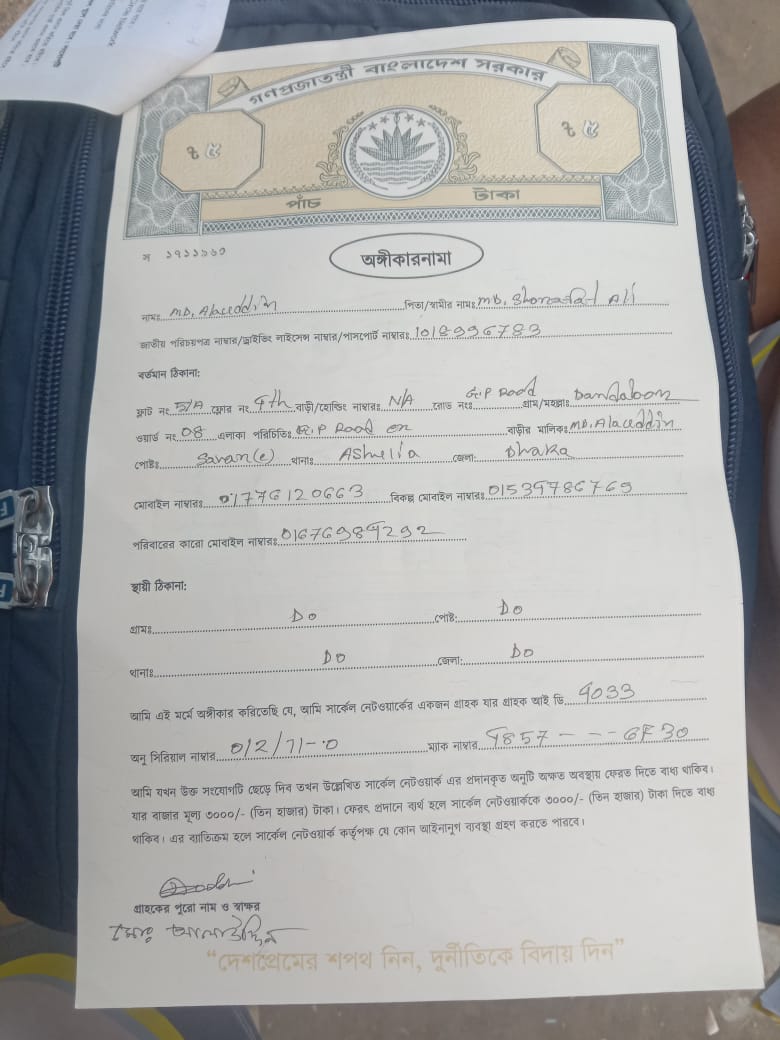 গণপ্রজাতন্ত্রী বাংলাদেশ সরকার
৳ ৫ ৳ ৫
পাঁচ টাকা
অঙ্গীকারনামা
নামঃ MD. Alaeddin পিতা/স্বামীর নামঃ MD. Ali
জাতীয় পরিচয়পত্র নাম্বার/ড্রাইভিং লাইসেন্স নাম্বার/পাসপোর্ট নাম্বারঃ 1018996783
বর্তমান ঠিকানা:
ফ্লাট নং N/A ফ্লোর নং 4th বাড়ী/হোল্ডিং নাম্বারঃ N/A রোড নংঃ G.P Road গ্রাম/মহল্লাঃ
ওয়ার্ড নং 08 এলাকা পরিচিতিঃ G.P Road বাড়ীর মালিকঃ MD. Alaeddin
পোষ্টঃ থানাঃ Ashulia জেলা: Dhaka
মোবাইল নাম্বারঃ 01776120663 বিকল্প মোবাইল নাম্বারঃ 01534786769
পরিবারের কারো মোবাইল নাম্বারঃ 01676984292
স্থায়ী ঠিকানা:
গ্রামঃ Do পোষ্ট: Do
থানাঃ Do জেলা: Do
আমি এই মর্মে অঙ্গীকার করিতেছি যে, আমি সার্কেল নেটওয়ার্কের একজন গ্রাহক যার গ্রাহক আই ডি 4033
অনু সিরিয়াল নাম্বার ম্যাক নাম্বার 4857 --- 6F30
আমি যখন উক্ত সংযোগটি ছেড়ে দিব তখন উল্লেখিত সার্কেল নেটওয়ার্ক এর প্রদানকৃত অনুটি অক্ষত অবস্থায় ফেরত দিতে বাধ্য থাকিব।
যার বাজার মূল্য ৩০০০/- (তিন হাজার) টাকা। ফেরৎ প্রদানে ব্যর্থ হলে সার্কেল নেটওয়ার্ককে ৩০০০/- (তিন হাজার) টাকা দিতে বাধ্য
থাকিব। এর ব্যতিক্রম হলে সার্কেল নেটওয়ার্ক কর্তৃপক্ষ যে কোন আইনানুগ ব্যবস্থা গ্রহণ করতে পারবে।
গ্রাহকের পুরো নাম ও স্বাক্ষর
মোঃ আলাউদ্দিন
“দেশপ্রেমের শপথ নিন, দুর্নীতিকে বিদায় দিন”